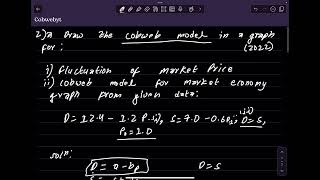 Cobwebys
2)a Draw the cobweb model in a graph
for: (2022)
i) Fluctuation of market Price
ii) cobweb model for market economy
graph from given data:
D = 12.4 - 1.2 P S = 7.0 - 0.6P D = S,
P₀ = 1.0
soln:
D = a - bp D = S